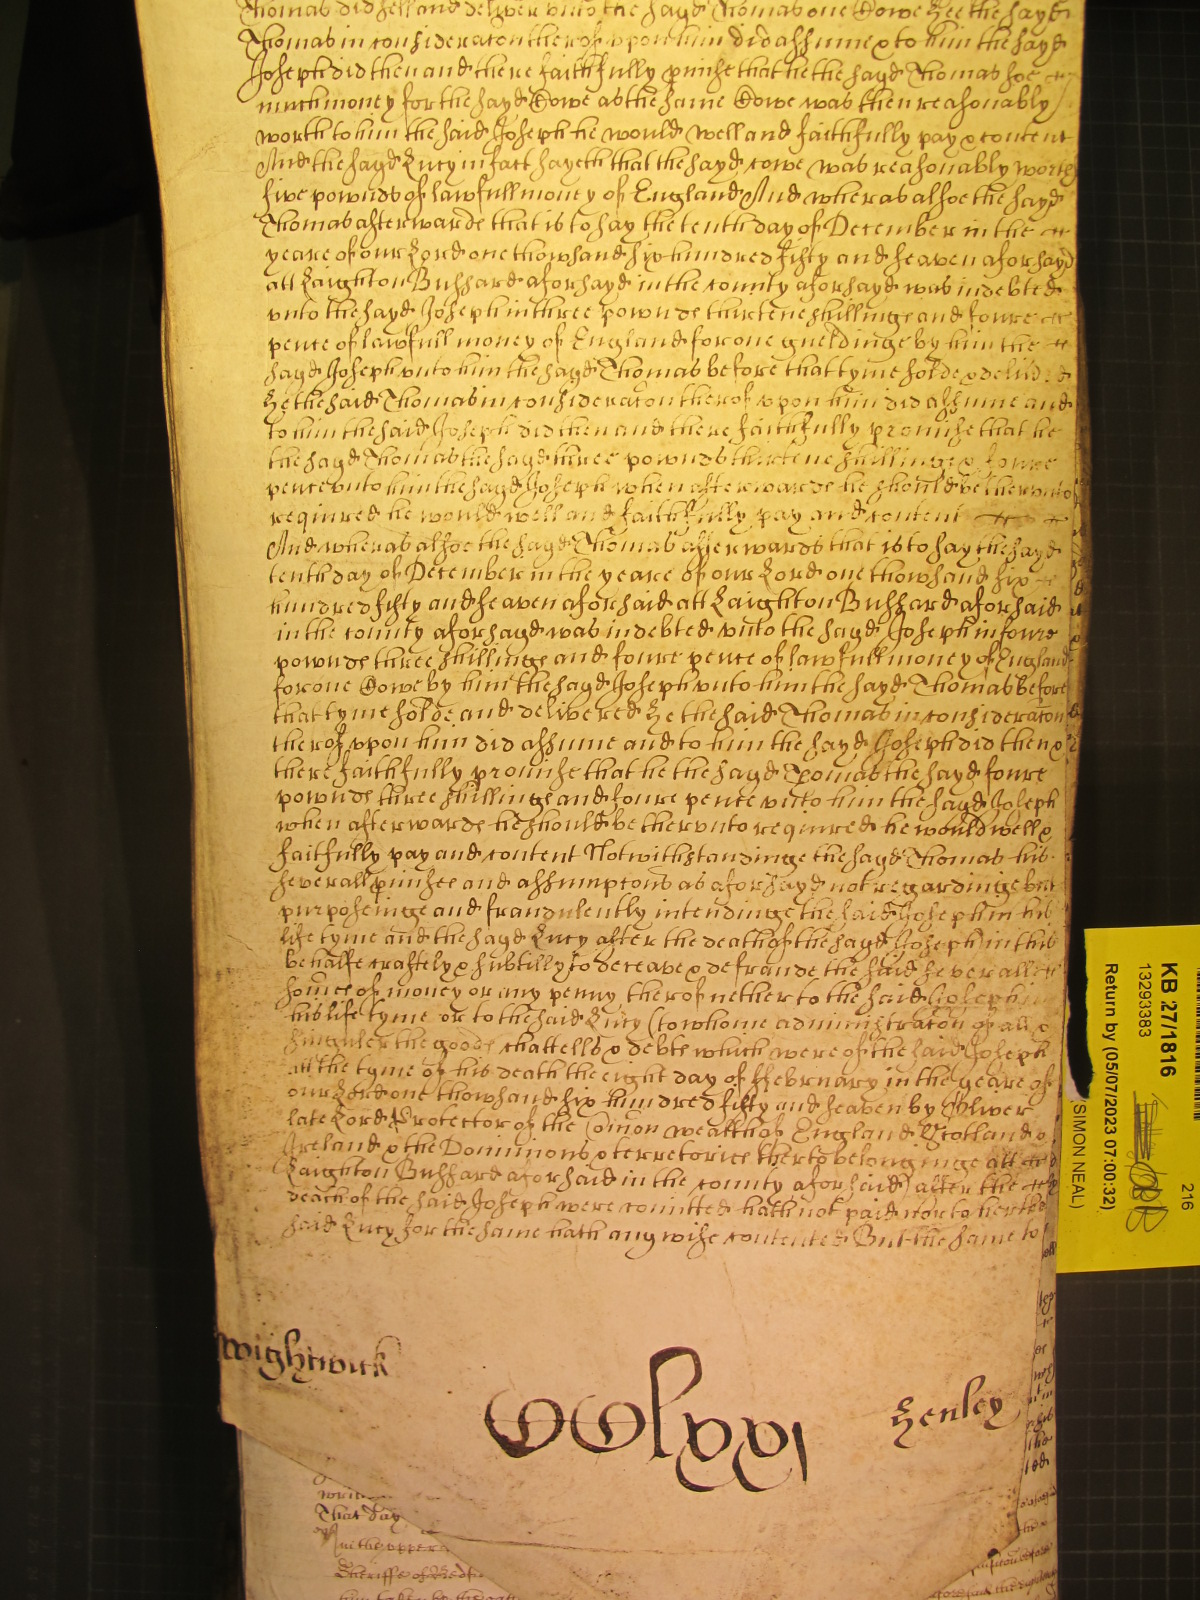 Thomas did sell and deliver unto the sayd Thomas one Cowe hee the sayd
Thomas in consideracon therof upon him did assume & to him the sayd
Joseph did then and there faithfully pmise that he the sayd Thomas soe
much money for the sayd Cowe as the same Cowe was then reasonably
worth to him the said Joseph he would well and faithfully pay & content
And the sayd Lucy in fact sayeth that the sayd cowe was reasonably worth
five pownds of lawfull money of England And wheras alsoe the sayd
Thomas afterwarde that is to say the tenth day of December in the
yeare of our Lord one thowsand six hundred fifty and seaven aforsayd
att Laighton Bussard aforsayd in the county aforsayd was indebted
unto the sayd Joseph in three pownds thirtene shillinge and foure
pence of lawfull money of England for one gueldinge by him the
sayd Joseph unto him the sayd Thomas before that tyme solde & delivd
He the said Thomas in consideracon therof upon him did assume and
to him the said Joseph did then and there faithfully promise that he
the sayd Thomas the sayd three pownds thirtene shillinge & foure
pence unto him the sayd Joseph when afterwards he should be therunto
required he would well and faithfully pay and content
And wheras alsoe the sayd Thomas afterwards that is to say the sayd
tenth day of December in the yeare of our Lord one thowsand six
hundred fifty and seaven aforsaid att Laighton Bussard aforsaid
in the county aforsayd was indebted unto the sayd Joseph in foure
pownds three shillinge and foure pence of lawfull money of England
for one Cowe by him the sayd Joseph unto him the sayd Thomas before
that tyme solde and delivered He the said Thomas in consideracon
therof upon him did assume and to him the sayd Joseph did then &
there faithfully promise that he the sayd Thomas the sayd foure
pownds three shillinge and foure pence unto him the sayd Joseph
when afterwards he should be therunto required he would well &
faithfully pay and content Notwithstandinge the sayd Thomas his
severall pmises and assumptons as aforsayd not regardinge but
purposeinge and fraudulently intendinge the said Joseph in his
life tyme and the sayd Lucy after the death of the sayd Joseph in this
behalfe craftely & subtilly to deceave & defraude the said severall
somes of money or any penny therof nether to the said Joseph in
his life tyme or to the said Lucy (to whome administracon of all &
singuler the goods chattells & debts which were of the said Joseph
att the tyme of his death the eight day of Ffebruary in the yeare of
our Lord one thowsand six hundred fifty and seaven by Oliver
late Lord Protector of the Comon wealth of England Scotland &
Ireland & the Dominions & terretories therto belonginge att
Laighton Bussard aforsaid in the county aforsaid) after the
death of the said Joseph were comitted hath not paid nor to her the
said Lucy for the same hath any wise contented But the same to
Wightwick
CClxxi
Henley
That day
in the upper
Sheriffe of Bedf
KB 27/1816
13293383
Return by (05/07/2023 07:00:32)
SIMON NEAL)
216